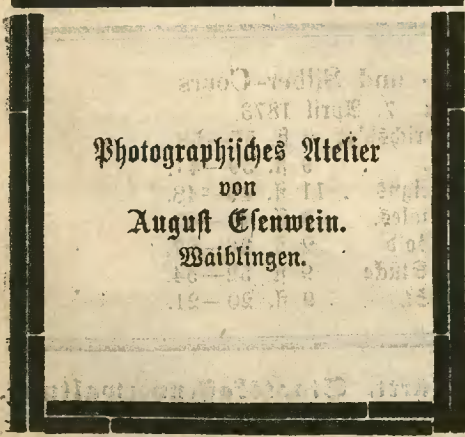 Photographisches Atelier
von
August Esenwein.
Waiblingen.